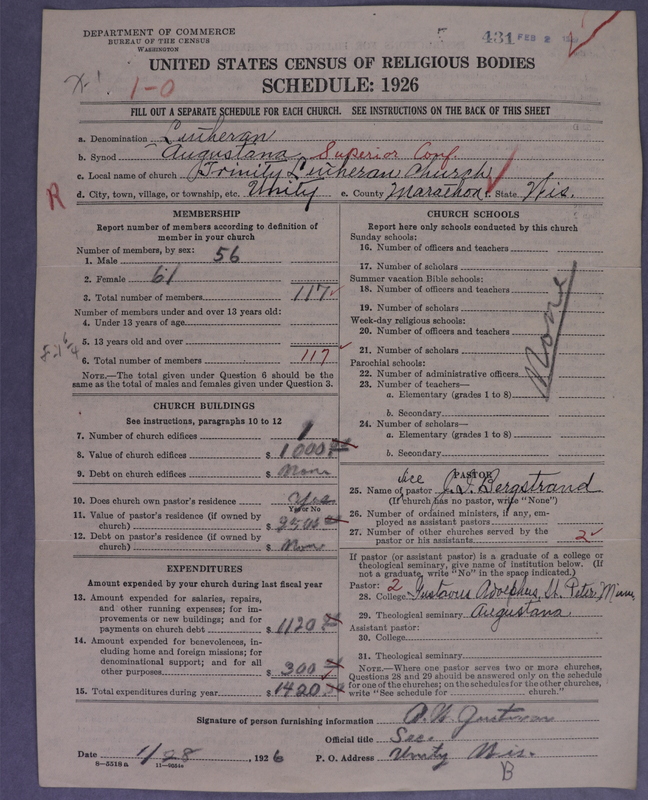 DEPARTMENT OF COMMERCE
BUREAU OF THE CENSUS
WASHINGTON
431 FEB 2
UNITED STATES CENSUS OF RELIGIOUS BODIES
SCHEDULE: 1926
1-0
FILL OUT A SEPARATE SCHEDULE FOR EACH CHURCH. SEE INSTRUCTIONS ON THE BACK OF THIS SHEET
a. Denomination Lutheran
b. Synod Augustana, Superior Conf.
c. Local name of church Trinity Lutheran Church
d. City, town, village, or township, etc. Unity e. County Marathon f. State Wis.
R
MEMBERSHIP
Report number of members according to definition of member in your church
Number of members, by sex:
1. Male 56
2. Female 61
3. Total number of members 117
Number of members under and over 13 years old:
4. Under 13 years of age
5. 13 years old and over
6. Total number of members 117
NOTE.—The total given under Question 6 should be the same as the total of males and females given under Question 3.
CHURCH BUILDINGS
See instructions, paragraphs 10 to 12
7. Number of church edifices 1
8. Value of church edifices $ 1000
9. Debt on church edifices $ None
10. Does church own pastor's residence Yes
Yes or No
11. Value of pastor's residence (if owned by church) $ 2500
12. Debt on pastor's residence (if owned by church) $ Non
EXPENDITURES
Amount expended by your church during last fiscal year
13. Amount expended for salaries, repairs, and other running expenses; for improvements or new buildings; and for payments on church debt $ 1120
14. Amount expended for benevolences, including home and foreign missions; for denominational support; and for all other purposes $ 300
15. Total expenditures during year $ 1420
CHURCH SCHOOLS
Report here only schools conducted by this church
Sunday schools:
16. Number of officers and teachers
17. Number of scholars
Summer vacation Bible schools:
18. Number of officers and teachers
19. Number of scholars
Week-day religious schools:
20. Number of officers and teachers
21. Number of scholars
Parochial schools:
22. Number of administrative officers
23. Number of teachers—
a. Elementary (grades 1 to 8)
b. Secondary
24. Number of scholars—
a. Elementary (grades 1 to 8)
b. Secondary
None
PASTOR
Vice
25. Name of pastor J. I. Bergstrand
(If church has no pastor, write "None")
26. Number of ordained ministers, if any, employed as assistant pastors
27. Number of other churches served by the pastor or his assistants 2
If pastor (or assistant pastor) is a graduate of a college or theological seminary, give name of institution below. (If not a graduate, write "No" in the space indicated.)
Pastor: 2
28. College Gustavus Adolphus, St. Peter, Minn
29. Theological seminary Augustana
Assistant pastor:
30. College
31. Theological seminary
NOTE.—Where one pastor serves two or more churches, Questions 28 and 29 should be answered only on the schedule for one of the churches; on the schedules for the other churches, write "See schedule for church."
Signature of person furnishing information A. W. Gustavson
Official title Sec.
Date 1/28, 1926 P. O. Address Unity Wis.
8—5518a
B